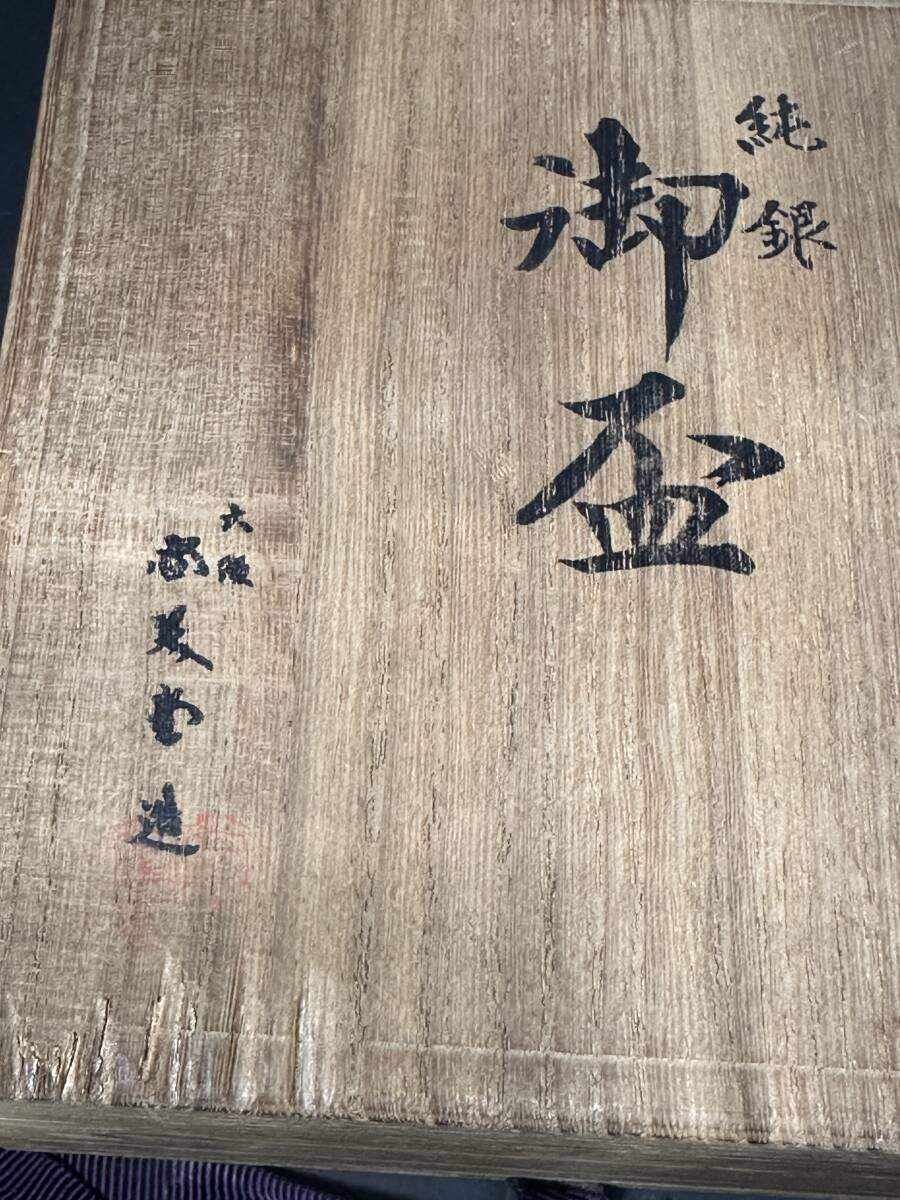 純銀
御盃
大阪
尚美堂造